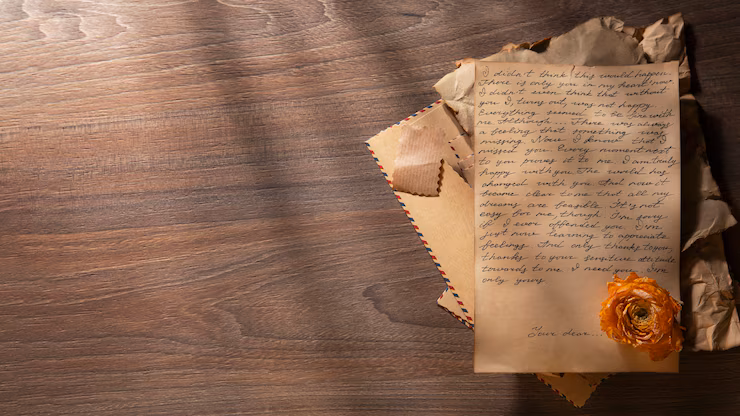 I didn't think this would happen.
There is only you in my heart now.
I didn't even think that without
you I, turns out, was not happy.
Everything seemed to be fine with
me Although.... There was always
a feeling that something was
missing. Now I know that I
missed you. Every moment next
to you proves it to me. I am truly
happy with you. The world has
changed with you. And now it
became clear to me that all my
dreams are feasible. It's not
easy for me, though. I'm sorry
if I ever offended you. I'm
just now learning to appreciate
feelings. And only thanks to you,
thanks to your sensitive attitude
towards to me. I need you. I'm
only yours.
Your dear...